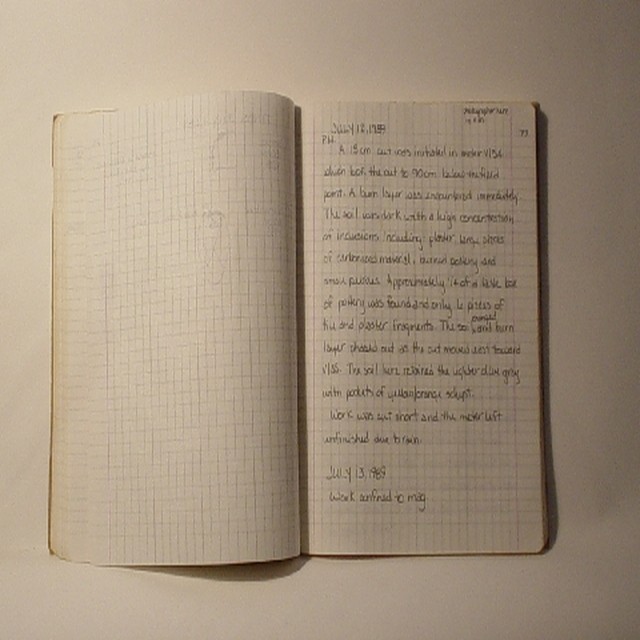 77
JULY 12, 1989
P.M.
A 15 cm cut was initiated in meter V/34
which took the cut to 90cm below the field
point. A burn layer was encountered immediately.
The soil was dark with a high concentration
of inclusions including: plaster, large pieces
of carbonized material, burned pottery and
small pebbles. Approximately of a box
of pottery was found and only pieces of
tile and plaster fragments. The and burn
layer phased out as the cut moved west toward
V/35. The soil here retained the lighter olive gray
with pockets of yellow/orange
Work was cut short and the meter left
unfinished due to rain.
JULY 13, 1989
Work confined to mag